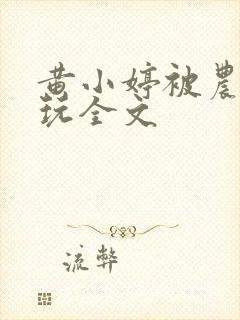 黄小婷被農
玩全文
流弊